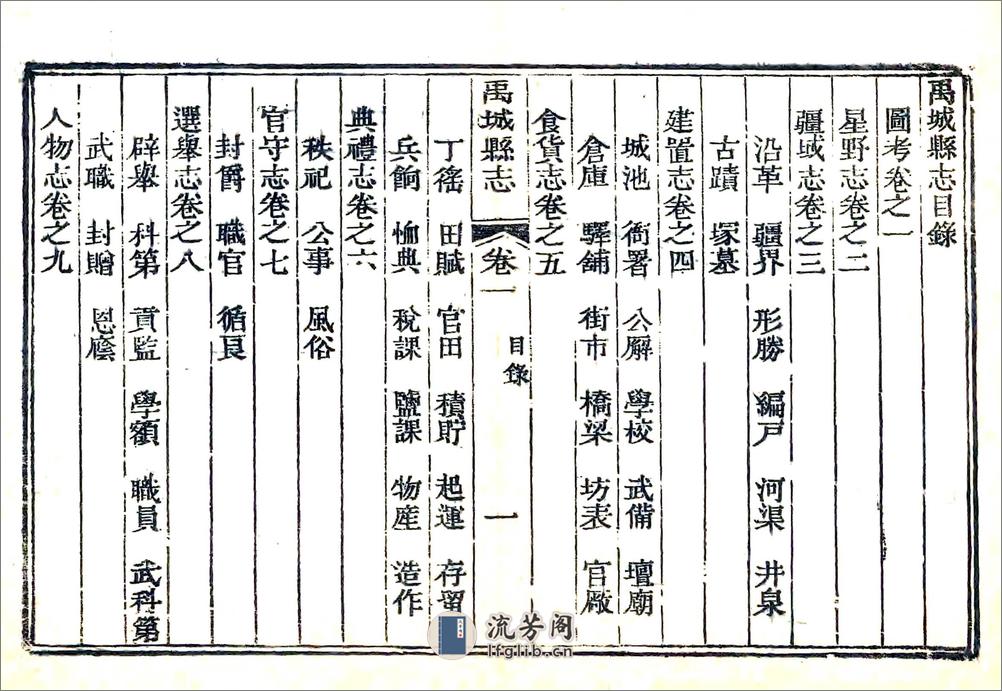 禹城縣志目錄
圖考卷之一
星野志卷之二
疆域志卷之三
沿革 疆界 形勝 編戶 河渠 井泉
古蹟 塚墓
建置志卷之四
城池 衙署 公廨 學校 武備 壇廟
倉庫 驛舖 街市 橋梁 坊表 官厰
食貨志卷之五
禹城縣志 卷一 目錄 一
丁徭 田賦 官田 積貯 起運 存留
兵餉 恤典 稅課 鹽課 物產 造作
典禮志卷之六
秩祀 公事 風俗
官守志卷之七
封爵 職官 循良
選舉志卷之八
辟舉 科第 貢監 學額 職員 武科第
武職 封贈 恩廕
人物志卷之九
流芳阁
lfglib.cn